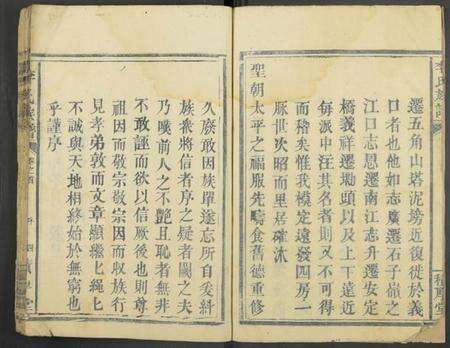 遷五角山塔泥塝近復徙於義
口者也他如志廣遷石子嶺之
江口志恩遷南江志升遷安定
橋義祥遷坳頭以及上下遠近
每派中注其名者則又不可得
而稽矣惟我模定遠發四房一
脈世次昭而里居確沐
聖朝太平之福服先疇食舊德重修
久廢敢因族單遂忘所自矣糾
族衆將信者序之疑者闕之夫
乃嘆前人之不艷且恥者無非
不敢誣而欲以信厥後也則尊
祖因而敬宗敬宗因而收族行
見孝弟敦而文章顯繼繼繩繩
不誠與天地相終始於無窮也
乎謹序
卷之首